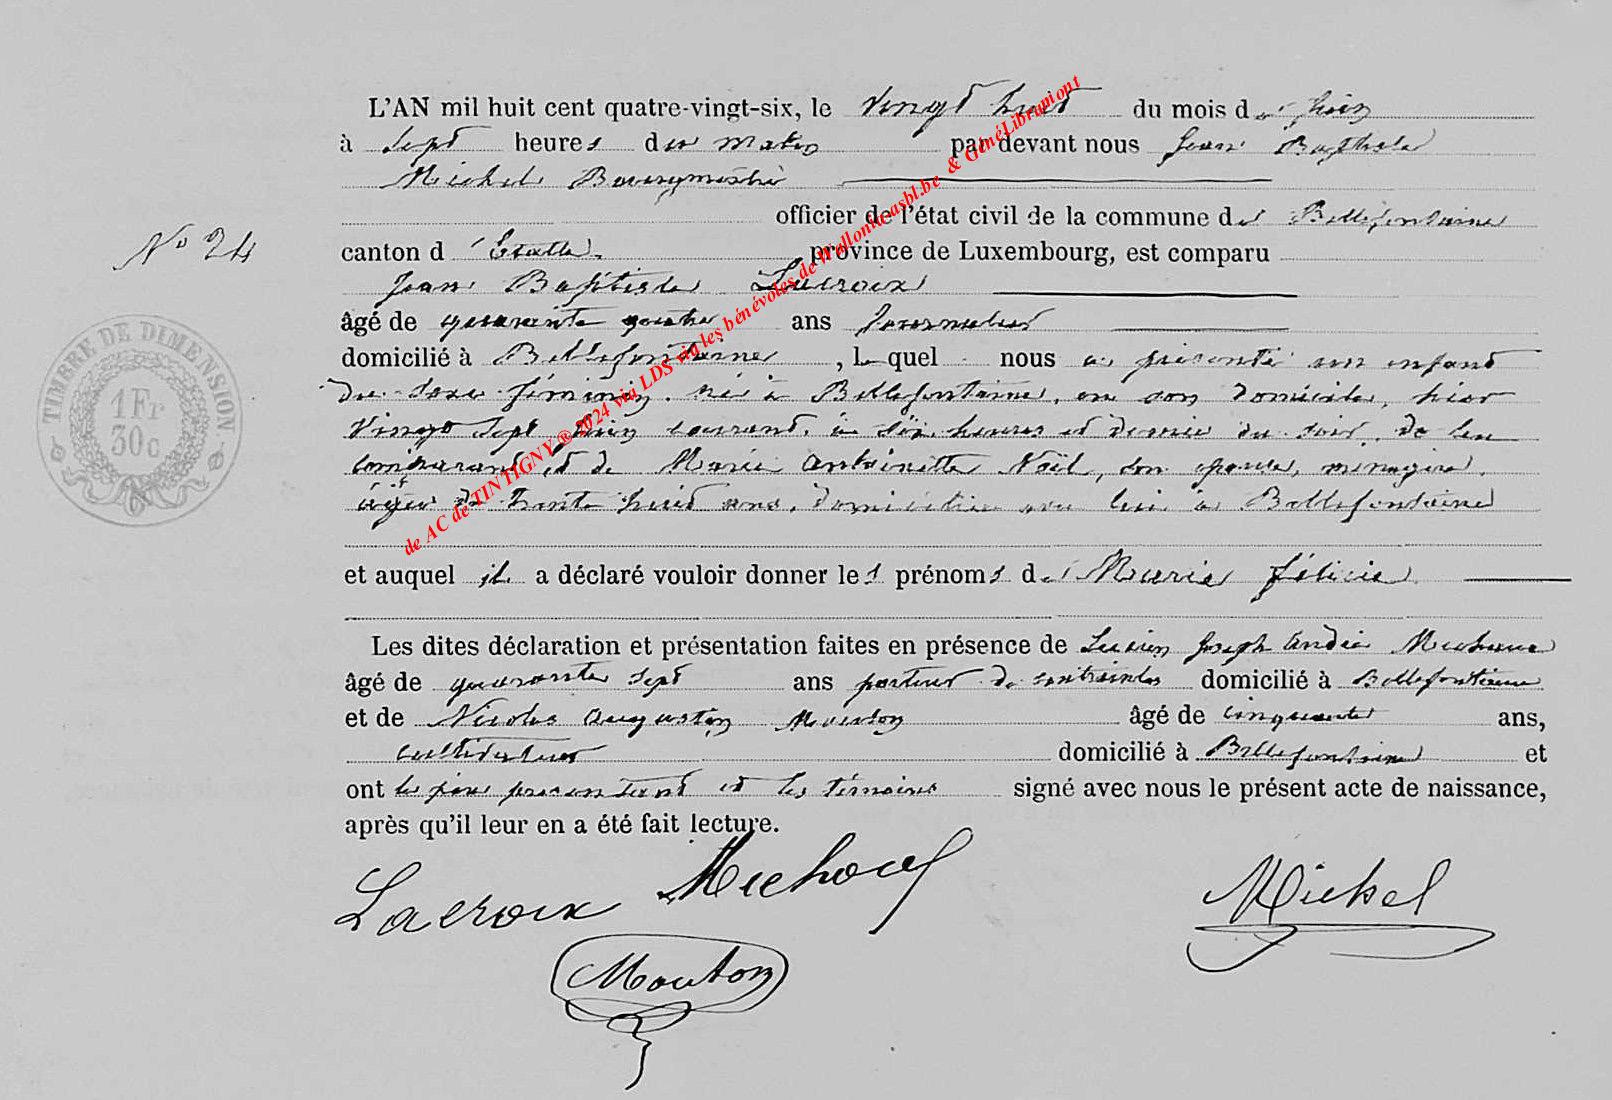 L'AN mil huit cent quatre-vingt-six, le vingt huit du mois de Juin
à sept heures du matin par devant nous Jean Baptiste
Michel Bourgmestre
officier de l'état civil de la commune de Bellefontaine
No 24
canton d'Etalle province de Luxembourg, est comparu
Jean Baptiste Lacroix
âgé de quarante quatre ans Journalier
domicilié à Bellefontaine, le quel nous a présenté un enfant
du sexe féminin, née à Bellefontaine, en son domicile, hier
vingt sept Juin courant, à six heures et demie du soir, de lui
comparant et de Marie Antoinette Noël, son épouse, ménagère,
âgée de trente huit ans, domiciliée avec lui à Bellefontaine
et auquel il a déclaré vouloir donner les prénoms de Marie félicie
Les dites déclaration et présentation faites en présence de Lucien Joseph André
âgé de quarante sept ans porteur de contraintes domicilié à Bellefontaine
et de Nicolas Augustin Mouton âgé de cinquante ans,
cultivateur domicilié à Bellefontaine et
ont le père présentant et les témoins signé avec nous le présent acte de naissance,
après qu'il leur en a été fait lecture.
Lacroix
Michel
Mouton
TIMBRE DE DIMENSION
1 Fr
30c
de AC de TINTIGNY ® 2024 via LDS via les bénévoles de Wallonia-asbl.be & GénéLibramont